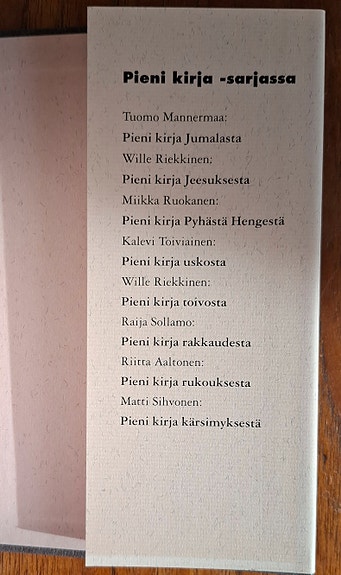 Pieni kirja -sarjassa
Tuomo Mannermaa:
Pieni kirja Jumalasta
Wille Riekkinen:
Pieni kirja Jeesuksesta
Miikka Ruokanen:
Pieni kirja Pyhästä Hengestä
Kalevi Toiviainen:
Pieni kirja uskosta
Wille Riekkinen:
Pieni kirja toivosta
Raija Sollamo:
Pieni kirja rakkaudesta
Riitta Aaltonen:
Pieni kirja rukouksesta
Matti Sihvonen:
Pieni kirja kärsimyksestä